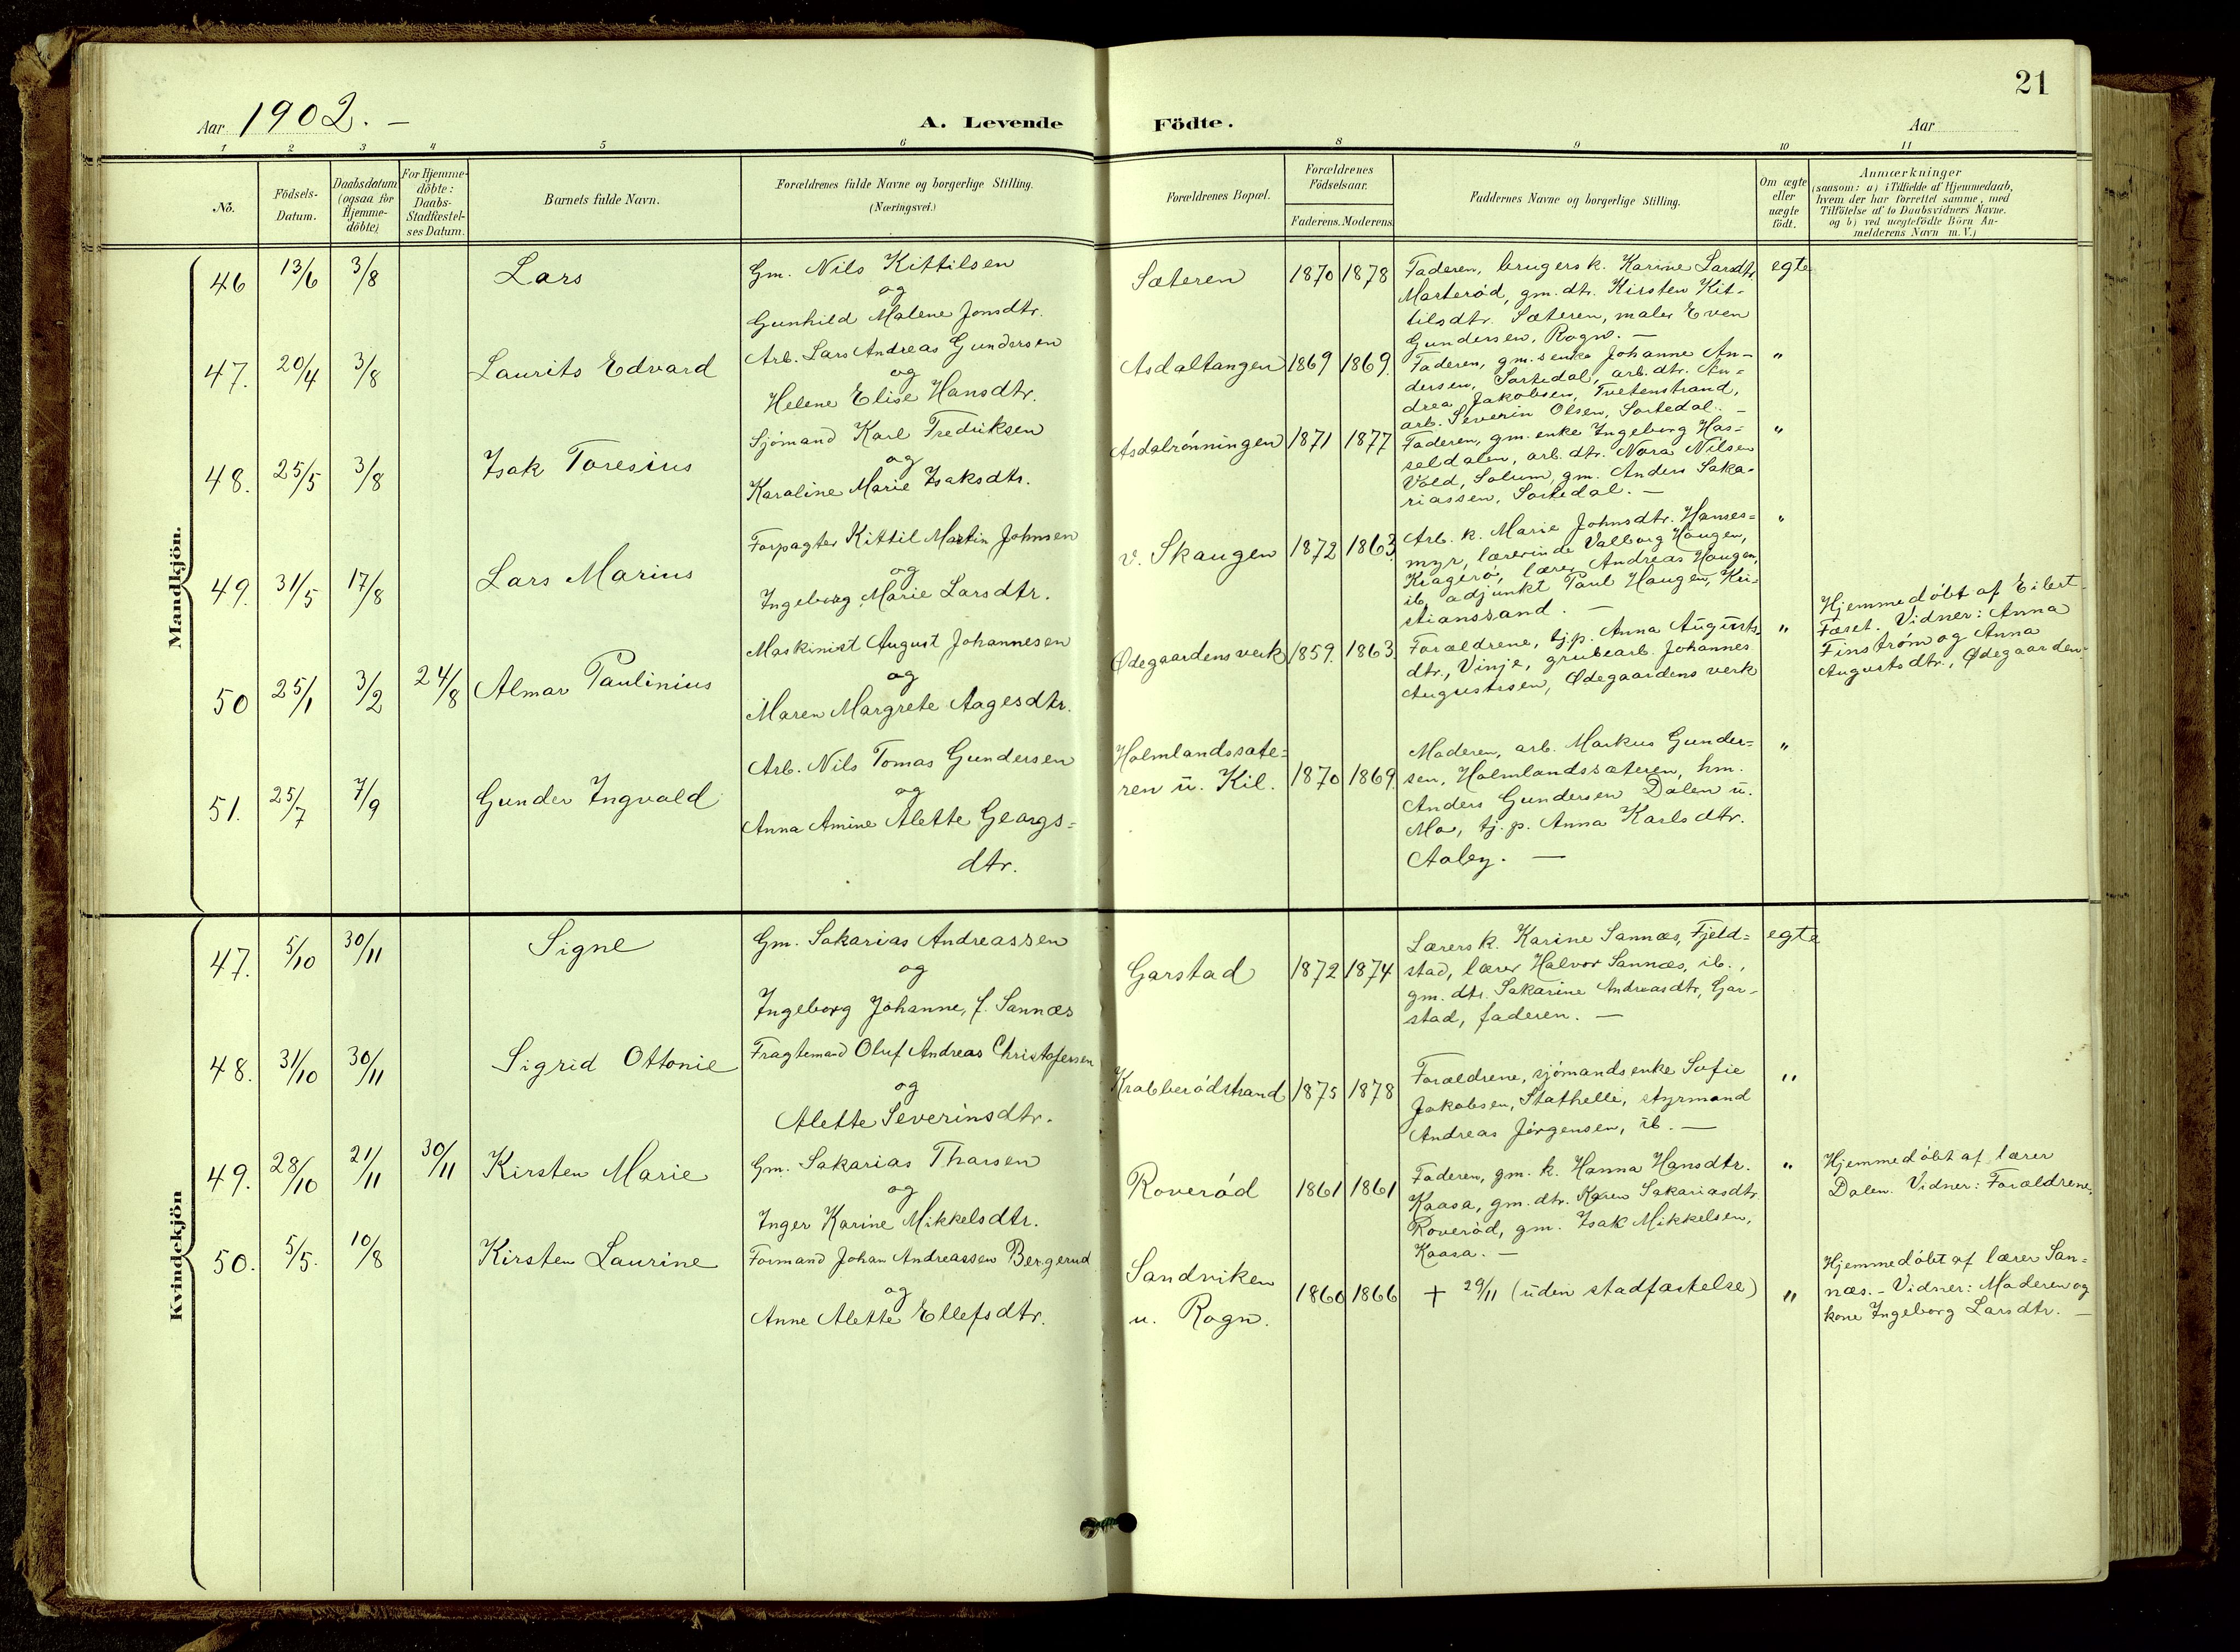 21
Aar 1902. –
A. Levende Födte.
Aar
1 2 3 4 5 6 8 9 10 11
No.
Födsels-
Datum.
Daabsdatum
(ogsaa for
Hjemme-
döbte)
For Hjemme-
döbte:
Daabs-
Stadfæstel-
ses Datum.
Barnets fulde Navn.
Forældrenes fulde Navne og borgerlige Stilling.
(Næringsvei.)
Forældrenes Bopæl.
Forældrenes
Födselsaar.
Faderens. Moderens.
Faddernes Navne og borgerlige Stilling.
Om ægte
eller
uægte
födt.
Anmærkninger
(saasom: a) i Tilfælde af Hjemmedaab,
hvem der har forrettet samme, med
Tilföielse af to Daabsvidners Navne.
og b) ved uægtefödte Börn An-
melderens Navn m. V.)
Mandkjön.
46 13/6 3/8 Lars
Gm. Nils Kittilsen
og
Gunhild Malene Jonsdtr.
Sæteren 1870 1878
Faderen, brugersk. Karine Larsdtr.
Marterød, gm. dtr. Kirsten Kit-
tilsdtr. Sæteren, maler Even
Gundersen, Rogn. –
egte
47. 20/4 3/8 Laurits Edvard
Arb. Lars Andreas Gundersen
og
Helene Elise Hansdtr.
Asdaltangen 1869 1869.
Faderen, gm.s enke Johanne An-
dersen, Sortedal, arb. dtr. An-
drea Jakobsen, Tvetenstrand,
arb. Severin Olsen, Sortedal. –
"
48. 25/5 3/8 Isak Toresius
Sjómand Karl Fredriksen
og
Karoline Marie Isaksdtr.
Asdalrønningen 1871 1877
Faderen, gm. enke Ingeborg Has-
seldalen, arb. dtr. Nora Nilsen
Vold, Solum, gm. Anders Saka-
riassen, Sortedal. –
"
49. 31/5 17/8 Lars Marius
Forpagter Kittil Martin Johnsen
og
Ingeborg Marie Larsdtr.
v. Skaugen 1872 1863
Arb. k. Marie Johnsdtr. Hanses-
myr, lærerinde Valborg Haugen,
Kragerø, lærer Andreas Haugen,
ib. adjunkt Paul Haugen, Kri-
stianssand. –
"
50 25/1 3/2 24/8 Almar Paulinius
Maskinist August Johannesen
og
Maren Margrete Aagesdtr.
Ødegaardens verk 1859. 1863
Forældrene, tj.p. Anna Augusts-
dtr., Vinje, grubearb. Johannes
Augustsen, Ødegaardens verk
"
Hjemmedøbt af Eilert
Fæset. Vidner: Anna
Finstrøm og Anna
Augustsdtr., Ødegaarden.
51. 25/7 7/9 Gunder Ingvald
Arb. Nils Tomas Gundersen
og
Anna Amine Alette Georgs-
dtr.
Holmlandssæte-
ren u. Kil. 1870 1869.
Moderen, arb. Markus Gunder-
sen, Holmlandssæteren, hm.
Anders Gundersen Dalen u.
Mo, tj. p. Anna Karlsdtr.
Aaby. –
"
Kvindekjön
47. 5/10 30/11 Signe
Gm. Sakarias Andreassen
og
Ingeborg Johanne, f. Sannæs
Garstad 1872 1874
Lærersk. Karine Sannæs, Fjeld-
stad, lærer Halvor Sannæs, ib.,
gm. dtr. Sakarine Andreasdtr, Gar-
stad, faderen. –
egte
48. 31/10 30/11 Sigrid Ottonie
Fragtemand Oluf Andreas Christofersen
og
Alette Severinsdtr.
Krabberødstrand 1875 1878
Forældrene, sjömands enke Sofie
Jakobsen, Stathelle, styrmand
Andreas Jörgensen, ib. –
"
49. 28/10 21/11 30/11 Kirsten Marie
Gm. Sakarias Thorsen
og
Inger Karine Mikkelsdtr.
Roverød 1861 1861
Faderen, gm. k. Hanna Hansdtr.
Kaasa, gm. dtr. Karen Sakariasdtr
Roverød, gm. Isak Mikkelsen,
Kaasa. –
"
Hjemmedöbt af lærer
Dalen. Vidner: Forældrene.
50. 5/5. 10/8 Kirsten Laurine
Formand Johan Andreassen Bergerud
og
Anne Alette Ellefsdtr.
Sandviken
u. Rogn. 1860 1866
+ 29/11 (uden stadfæstelse)
"
Hjemmedöbt af lærer San-
næs. – Vidner: Moderen og
kone Ingeborg Larsdtr. –